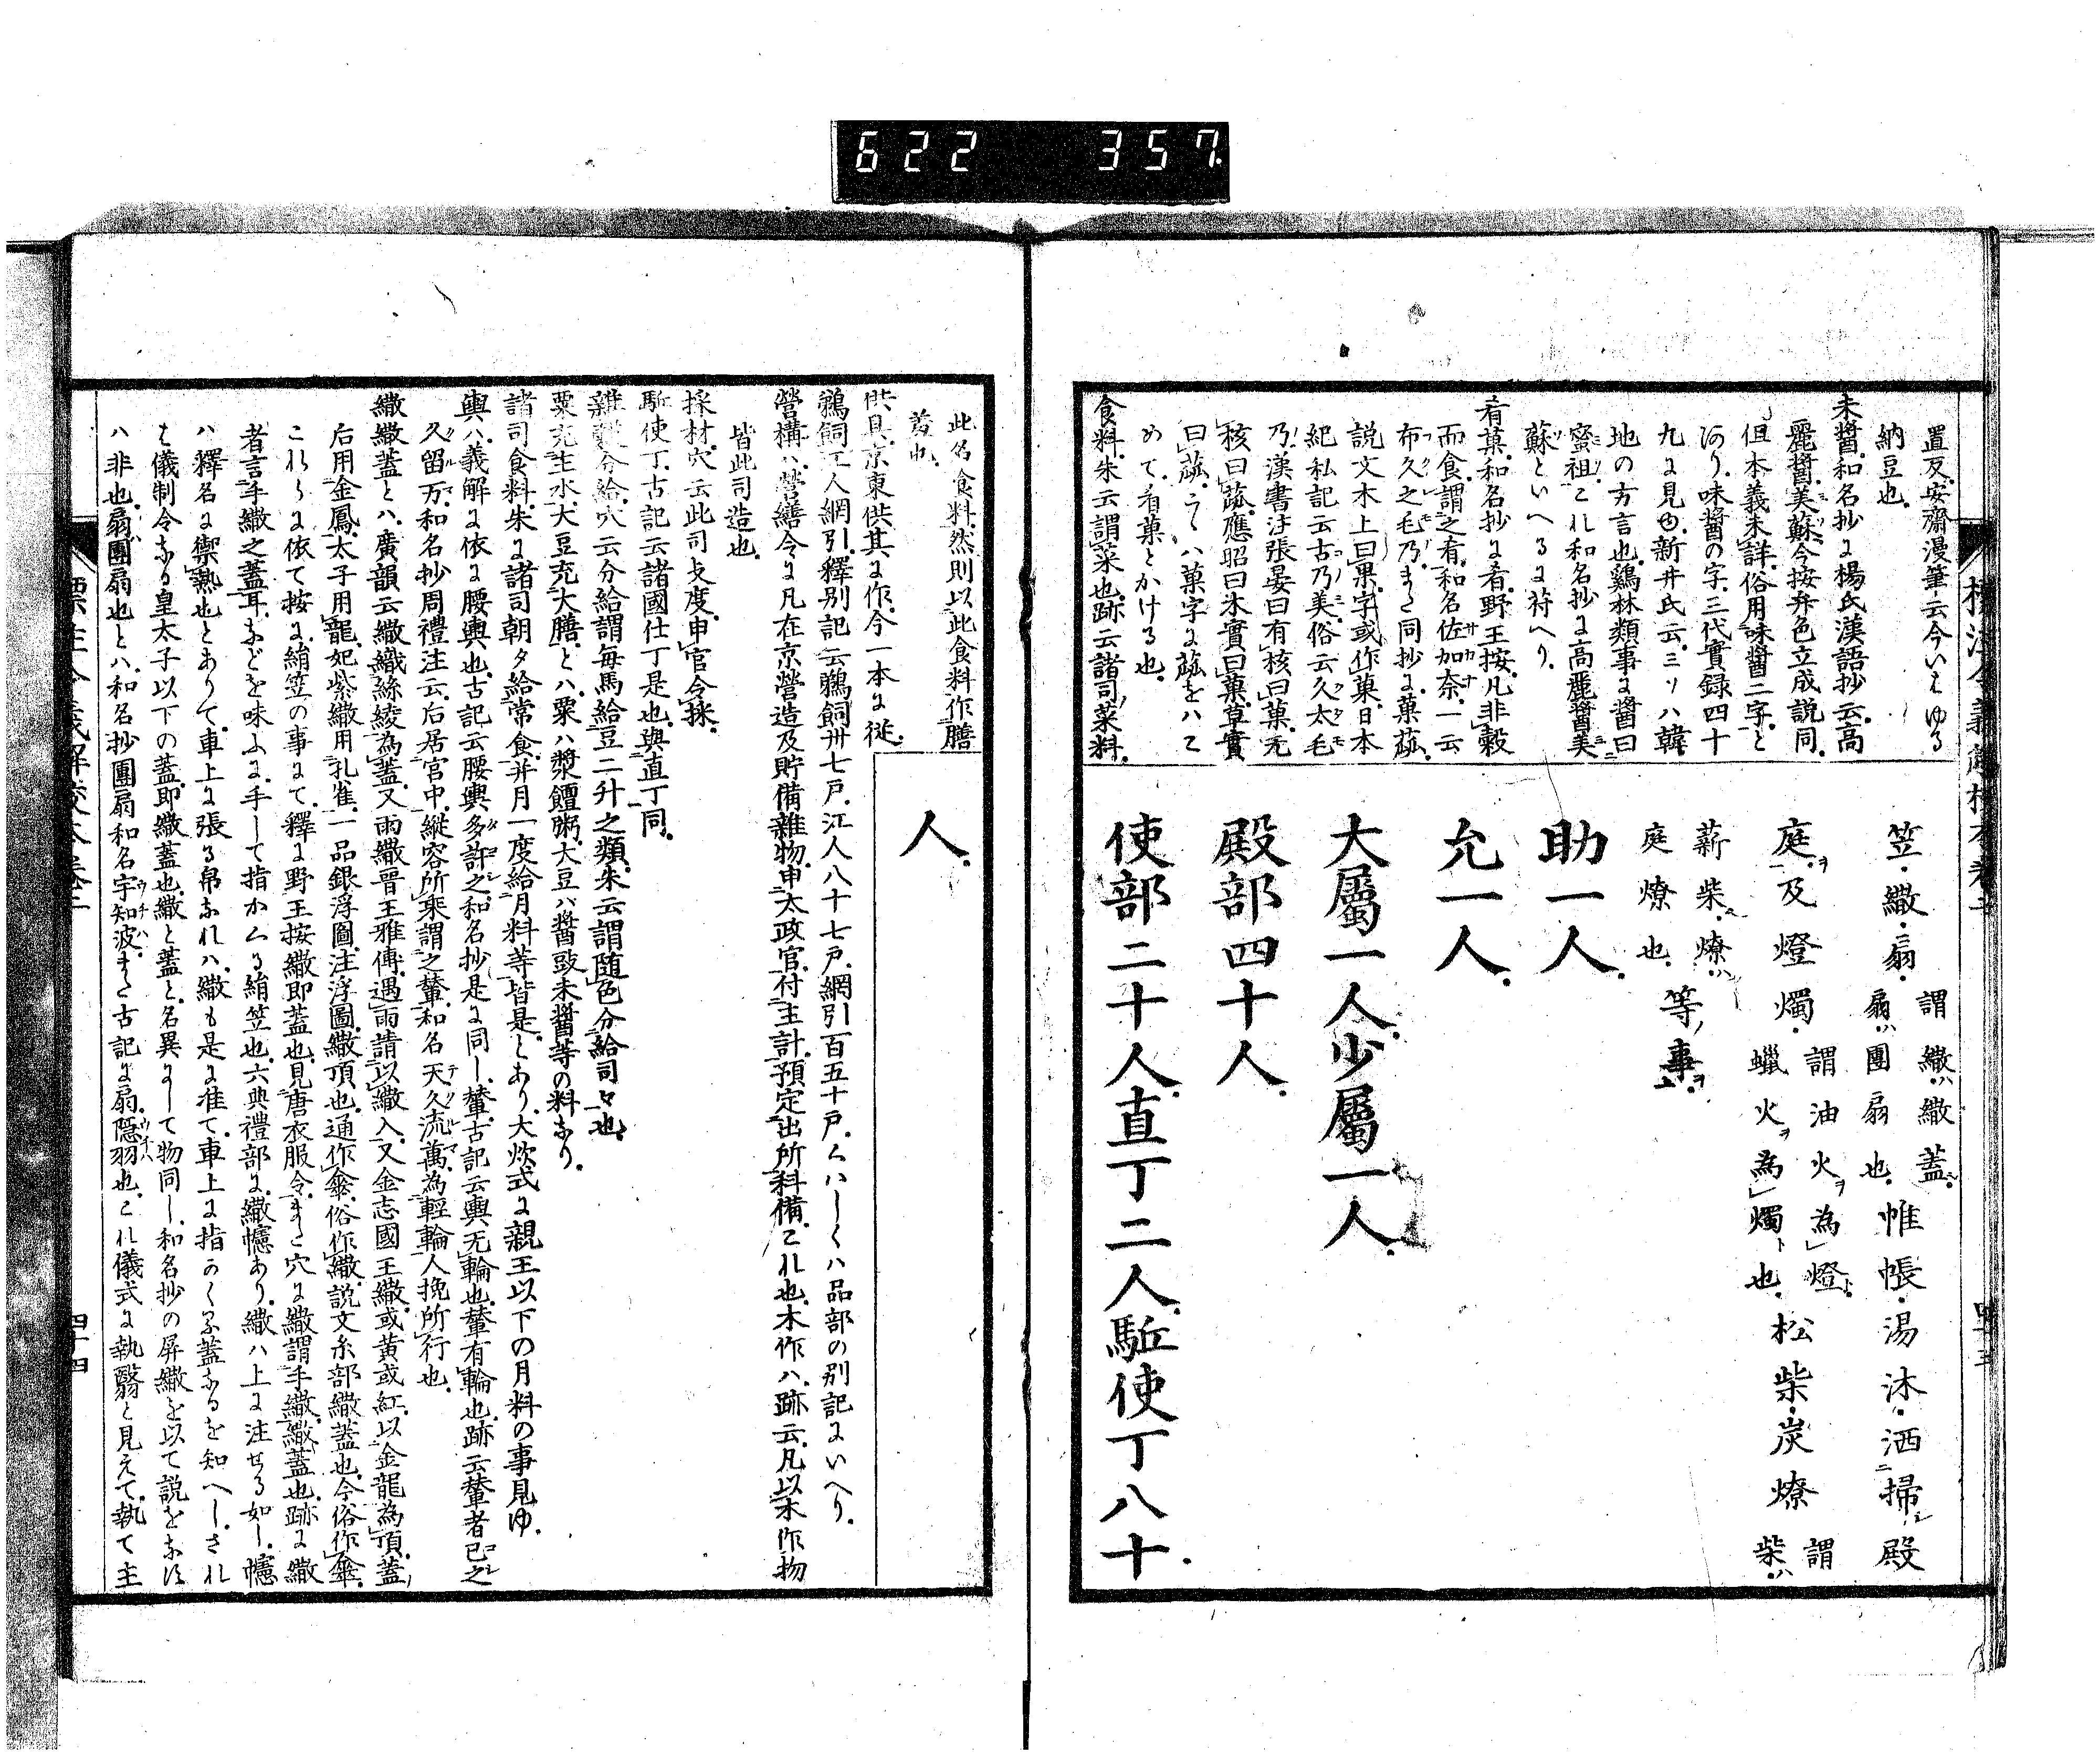 622 357
置及安齋漫筆云今いはゆる
納豆也
未醤和名抄に楊氏漢語抄云高
麗醤美蘇今按弁色立成説同
但本義未詳俗用味醤二字と
あり味醤の字三代實録四十
九に見ゆ新井氏云ミソハ韓
地の方言也鷄林類事に醤曰
蜜祖これ和名抄に高麗醤美
蘇といへるに符へり
肴菓和名抄に肴野王按凡非穀
而食謂之肴和名佐加奈一云
布久之毛乃また同抄に菓蓏
説文木上曰果字或作菓日本
紀私記云古乃美俗云久太毛
乃漢書注張晏曰有核曰菓无
核曰蓏應昭曰木實曰菓草實
曰蓏こゝハ菓字に蓏をハこ
めて肴菓とかける也
食料朱云謂菜也跡云諸司菜料
笠繖扇謂繖ハ繖蓋扇ハ團扇也帷帳湯沐洒掃殿
庭及燈燭謂油火ヲ為燈蠟火ヲ為燭ト也松柴炭燎謂柴ハ
薪柴燎ハ庭燎也等ノ事ヲ
助一人
允一人
大屬一人少屬一人
殿部四十人
使部二十人直丁二人駈使丁八十
四十三
此名食料然則以此食料作膳
羞也
供具京東供其に作今一本に從
鵜飼江人網引釋別記云鵜飼卅七戸江人八十七戸網引百五十戸くハしくハ品部の別記にいへり
營構ハ營繕令に凡在京營造及貯備雜物申太政官付主計預定出所科備これ也木作ハ跡云凡以木作物
皆此司造也
採材穴云此司支度申官令採
駈使丁古記云諸國仕丁是也與直丁同
雜穀分給穴云分給謂毎馬給豆二升之類朱云謂随色分給司々也
粟充主水大豆充大膳とハ粟ハ漿饘粥大豆ハ醤豉未醤等の料なり
諸司食料朱に諸司朝夕給常食并月一度給月料等皆是とあり大炊式に親王以下の月料の事見ゆ
輿ハ義解に依に腰輿也古記云腰輿多許之和名抄是に同し輦古記云輿无輪也輦有輪也跡云輦者己之
久留万和名抄周禮注云后居宮中縱容所乘謂之輦和名天久流萬為輕輪人挽所行也
繖繖蓋とハ廣韻云繖織絲綾為蓋又雨繖晋王雅傳遇雨請以繖入又金志國王繖或黄或紅以金龍為頂蓋
后用金鳳太子用龍妃紫繖用孔雀一品銀浮圖注浮圖繖頂也通作傘俗作繖説文糸部繖蓋也今俗作傘
これらに依て按に絹笠の事にて釋に野王按繖即蓋也見唐衣服令また穴に繖謂手繖繖蓋也跡に繖
者言手繖之蓋耳などを味ふに手して指かくる絹笠也六典禮部に繖幰あり繖ハ上に注せる如し幰
ハ釋名に禦熱也とありて車上に張る帛なれハ繖も是に准て車上に指かくる蓋なるを知へしされ
は儀制令なる皇太子以下の蓋即繖蓋也繖と蓋と名異にして物同し和名抄の屏繖を以て説をなすハ
ハ非也扇團扇也とハ和名抄團扇和名宇知波また古記に扇隠羽也これ儀式に執翳と見えて執て主
人
四十四